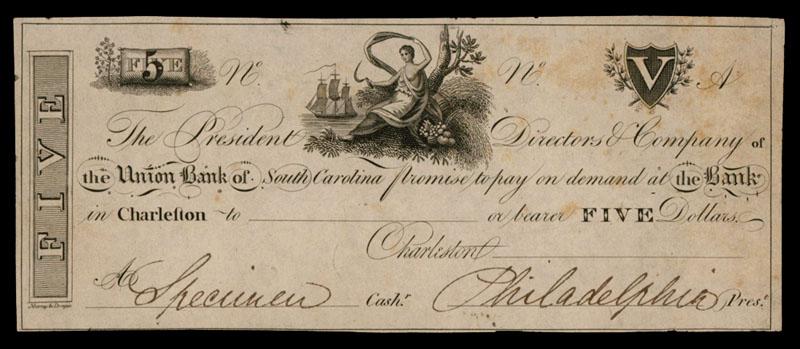 FIVE
FIVE 5 No. No. V A
The President Directors & Company of
the Union Bank of South Carolina promise to pay on demand at the Bank
in Charleſton to or bearer FIVE Dollars.
Charleston
A Specimen Cash.r Philadelphia Pres.t
Murray & Draper